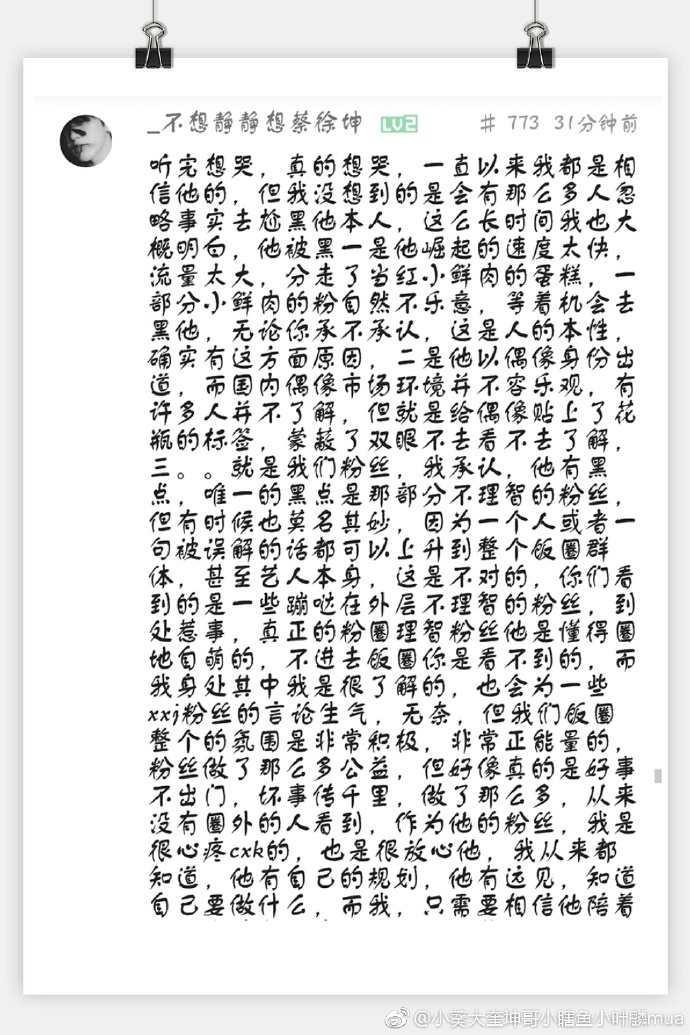 _不想静静想蔡徐坤 LV2 # 773 31分钟前
听完想哭，真的想哭，一直以来我都是相
信他的，但我没想到的是会有那么多人忽
略事实去尬黑他本人，这么长时间我也大
概明白，他被黑一是他崛起的速度太快，
流量太大，分走了当红小鲜肉的蛋糕，一
部分小鲜肉的粉自然不乐意，等着机会去
黑他，无论你承不承认，这是人的本性，
确实有这方面原因，二是他以偶像身份出
道，而国内偶像市场环境并不容乐观，有
许多人并不了解，但就是给偶像贴上了花
瓶的标签，蒙蔽了双眼不去看不去了解，
三。。就是我们粉丝，我承认，他有黑
点，唯一的黑点是那部分不理智的粉丝，
但有时候也莫名其妙，因为一个人或者一
句被误解的话都可以上升到整个饭圈群
体，甚至艺人本身，这是不对的，你们看
到的是一些蹦哒在外层不理智的粉丝，到
处惹事，真正的粉圈理智粉丝他是懂得圈
地自萌的，不进去饭圈你是看不到的，而
我身处其中我是很了解的，也会为一些
xxj粉丝的言论生气，无奈，但我们饭圈
整个的氛围是非常积极，非常正能量的，
粉丝做了那么多公益，但好像真的是好事
不出门，坏事传千里，做了那么多，从来
没有圈外的人看到，作为他的粉丝，我是
很心疼cxk的，也是很放心他，我从来都
知道，他有自己的规划，他有远见，知道
自己要做什么，而我，只需要相信他陪着
@小葵大奎坤哥小瞎鱼小叶麟mua